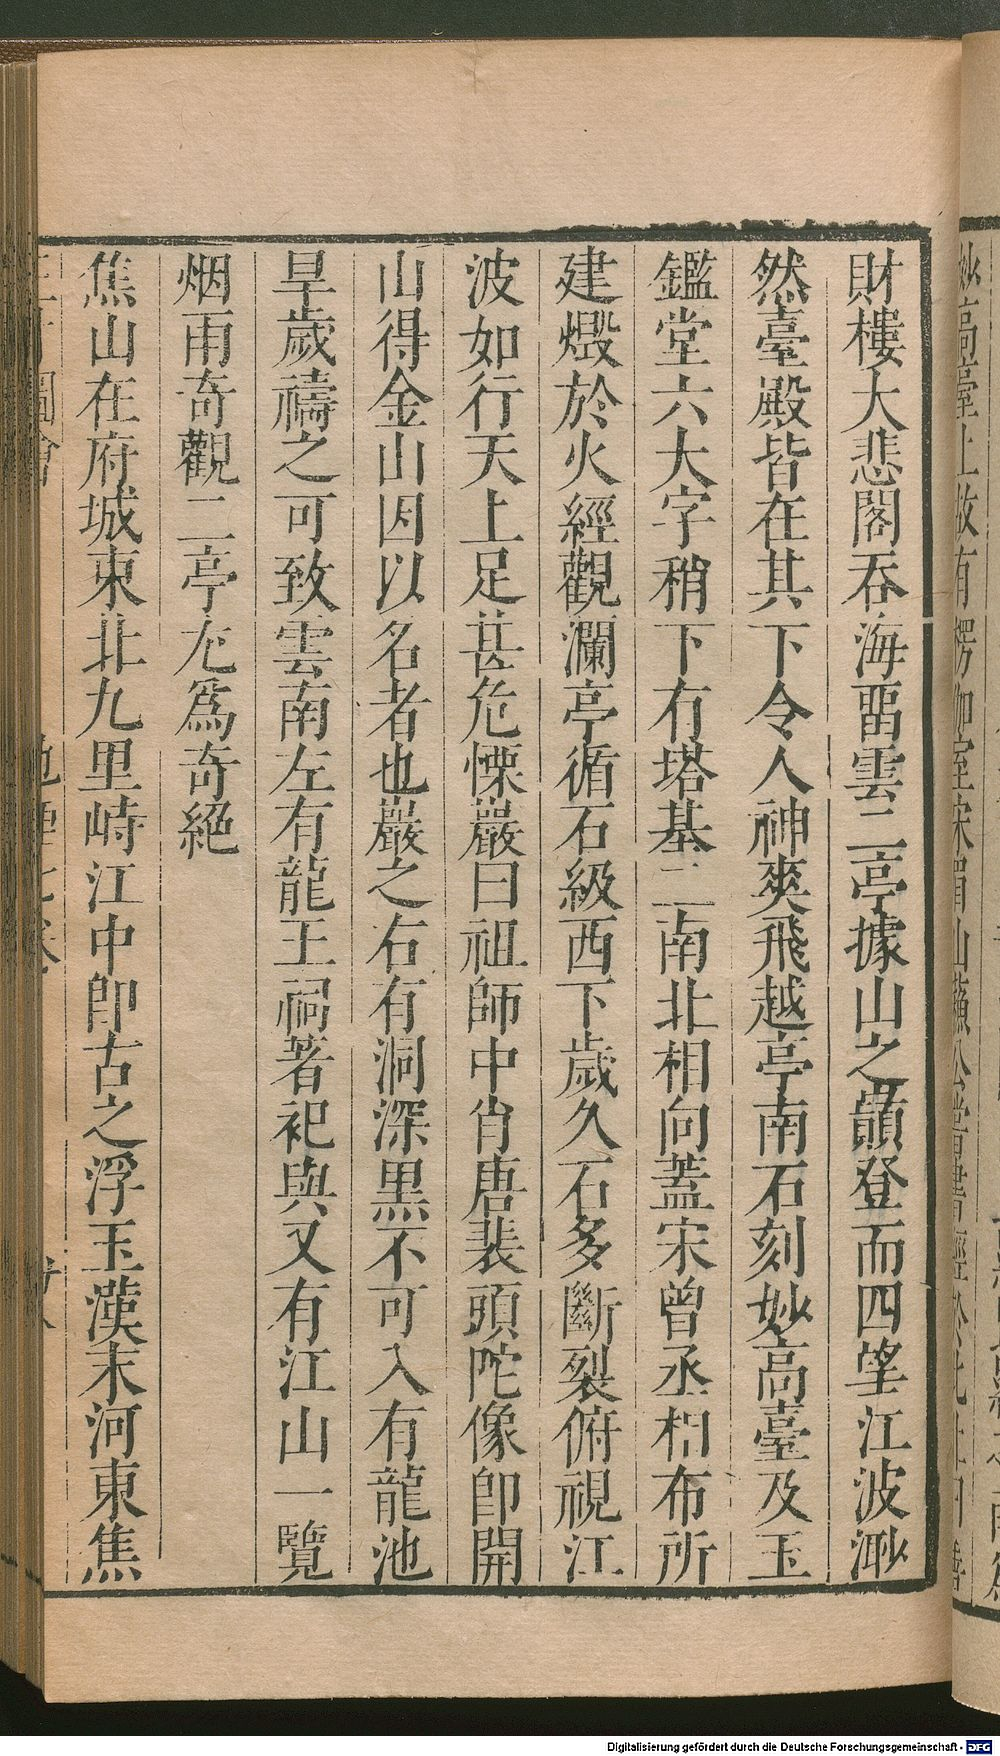 財樓大悲閣吞海畱雲二亭據山之巔登而四望江波渺
然臺殿皆在其下令人神爽飛越亭南石刻妙高臺及玉
鑑堂六大字稍下有塔基二南北相向蓋宋曾丞相布所
建燬於火經觀瀾亭循石級西下歲久石多斷裂俯視江
波如行天上足甚危慄巖曰祖師中肖唐裴頭陀像即開
山得金山因以名者也巖之右有洞深黑不可入有龍池
旱歲禱之可致雲南左有龍王祠著祀典又有江山一覽
烟雨奇觀二亭尤爲奇絕
焦山在府城東北九里峙江中即古之浮玉漢末河東焦
Digitalisierung gefördert durch die Deutsche Forschungsgemeinschaft - DFG